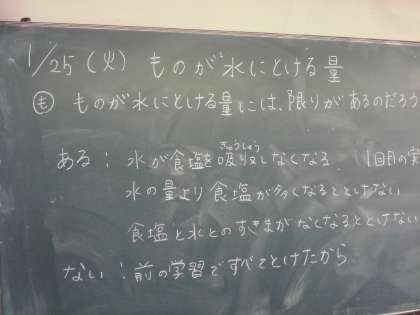 1/25(火) ものが水にとける量
も ものが水にとける量には、限りがあるのだろう
きゅうしゅう
ある：水が食塩を吸収しなくなる (1回目の実
水の量より食塩が多くなるととけない
食塩と水とのすきまがなくなるととけない
ない：前の学習ですべてとけたから